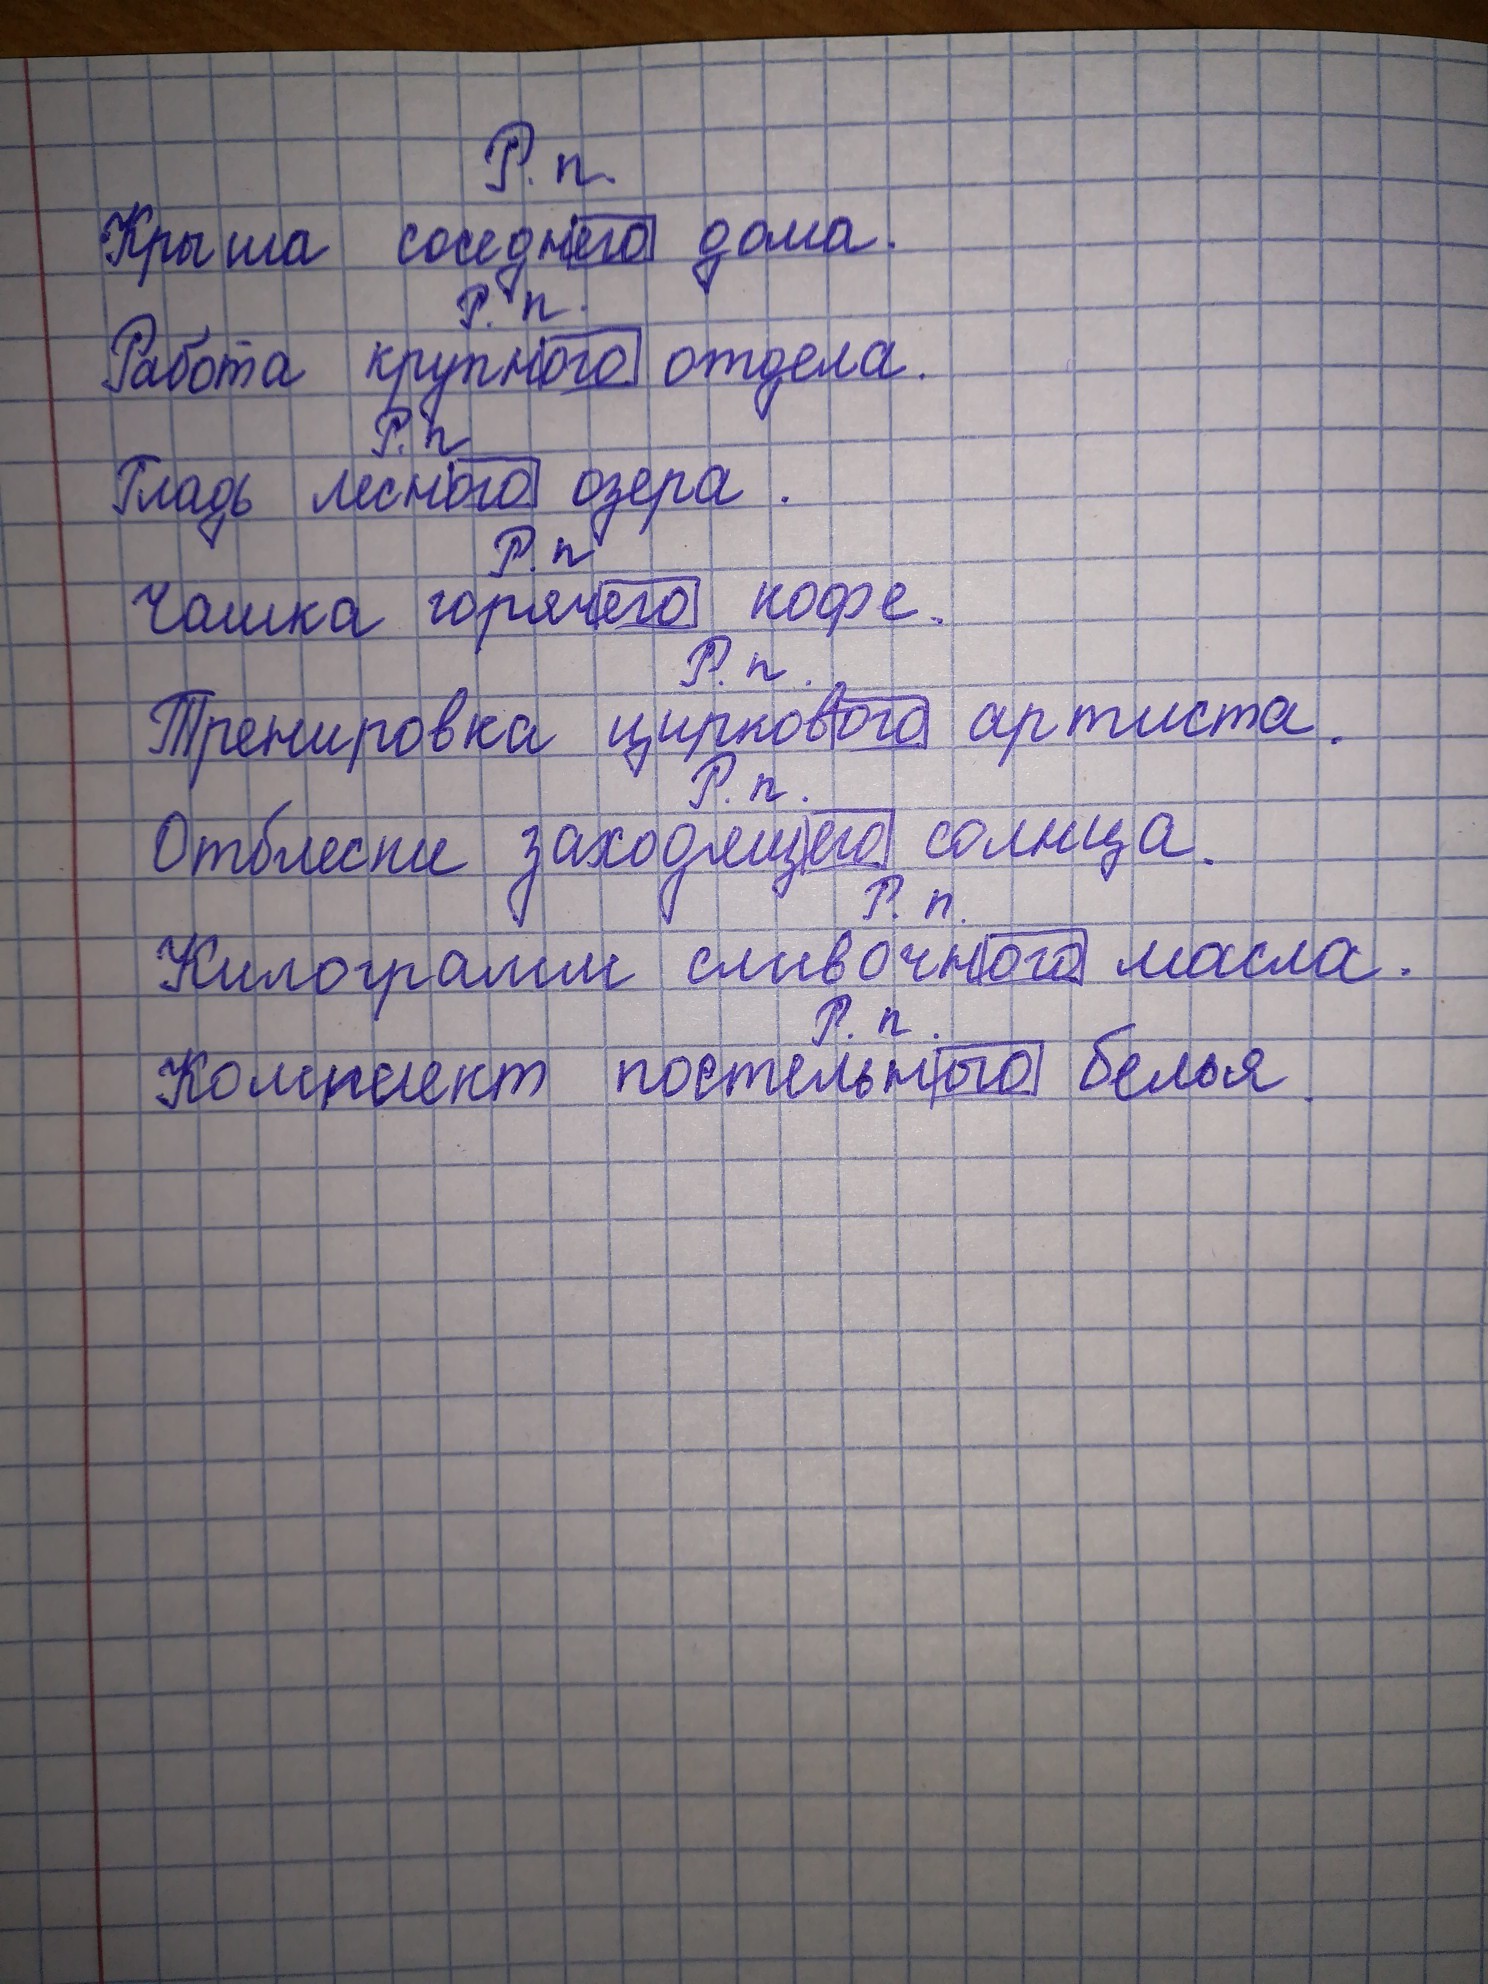 Р. п.
Крыша соседнего дома.
Р. п.
Работа крупного отдела.
Р. п
Гладь лесного озера.
Р. п
Чашка горячего кофе.
Р. п.
Тренировка циркового артиста.
Р. п.
Отблески заходящего солнца.
Р. п.
Килограмм сливочного масла.
Р. п.
Комплект постельного белья.